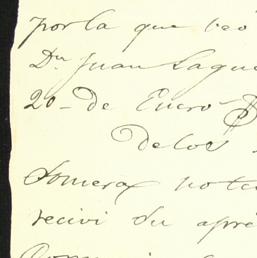 por la que veo
Dn Juan Lague
20 - de Enero
de los
Somera notic
recivi su apré